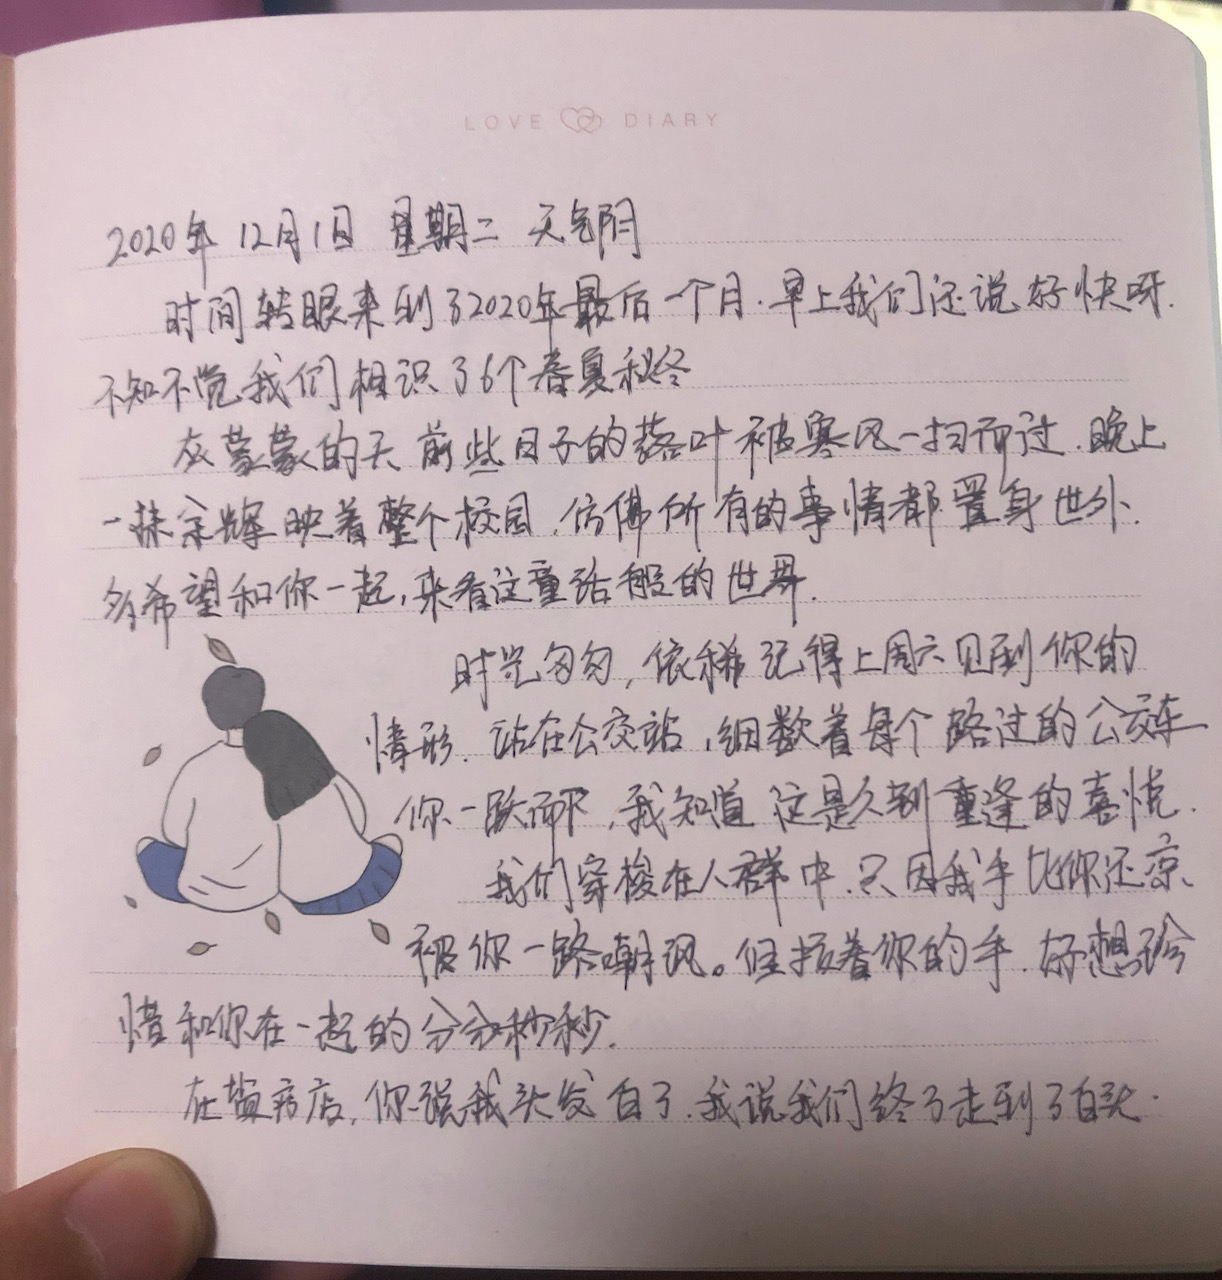 LOVE DIARY
2020年 12月1日 星期二 天气阴
时间转眼来到了2020年最后一个月.早上我们还说好快呀.
不知不觉我们相识了6个春夏秋冬
灰蒙蒙的天 前些日子的落叶被寒风一扫而过.晚上
一抹余辉映着整个校园.仿佛所有的事情都置身世外.
多希望和你一起,来看这童话般的世界.
时光匆匆,依稀记得上周六见到你的
情形.站在公交站,细数着每个路过的公交车
你一跃而下,我知道这是久别重逢的喜悦.
我们穿梭在人群中.只因我手比你还凉.
被你一路嘲讽。但握着你的手.好想珍
惜和你在一起的分分秒秒.
在 店,你说我头发白了.我说我们终于走到了白头.